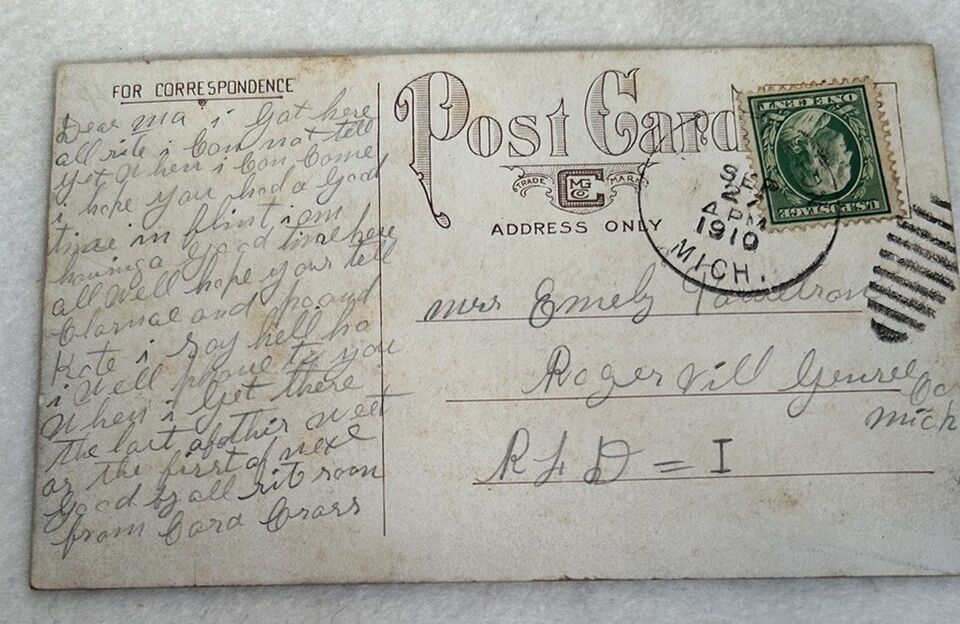 FOR CORRESPONDENCE
Dear ma i got here
all rite i Can not tell
yet When i Can Come
i hope you had a good
time in flint i am
having a good time here
all well hope your
Clarnac and
Kate i say hell ho
i well phone to you
When i get there
the last of this week
or the first of next
good by all rit soon
from Cora
Post Card
TRADE MARK
ADDRESS ONLY
SEP
2
4 PM
1910
MICH.
U.S. POSTAGE
ONE CENT
mrs Emely
Roger vill Genese Co
mich
R F D = I